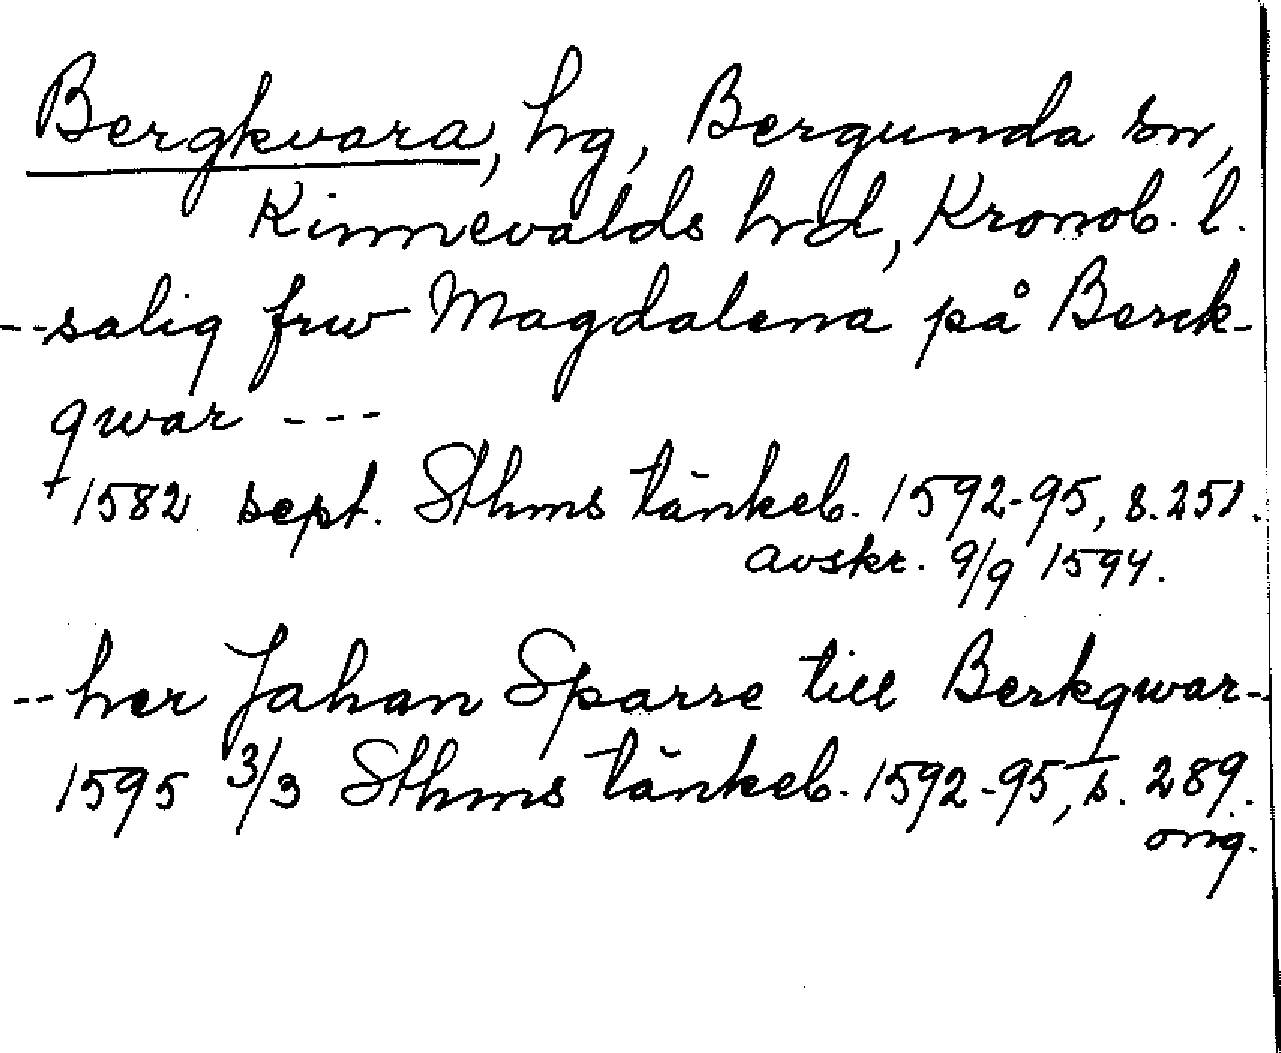 Bergkvara, hg, Bergunda sn,
Kinnevalds hrd, Kronob. l.
--salig frw Magdalena på Berck-
qwar ---
1582 sept. Sthms tänkeb. 1592-95, s. 251.
avskr. 9/9 1594.
--her Jahan Sparre till Berkqwar--
1595 3/3 Sthms tänkeb. 1592-95, s. 289.
orig.